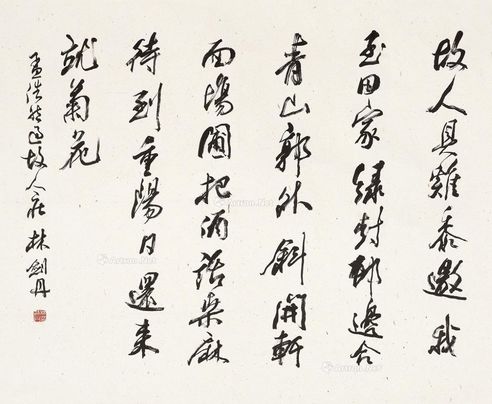 故人具雞黍邀我
至田家綠樹邨邊合
青山郭外斜開軒
面場圃把酒話桑麻
待到重陽日還来
就菊花
孟浩然過故人莊 林劍丹